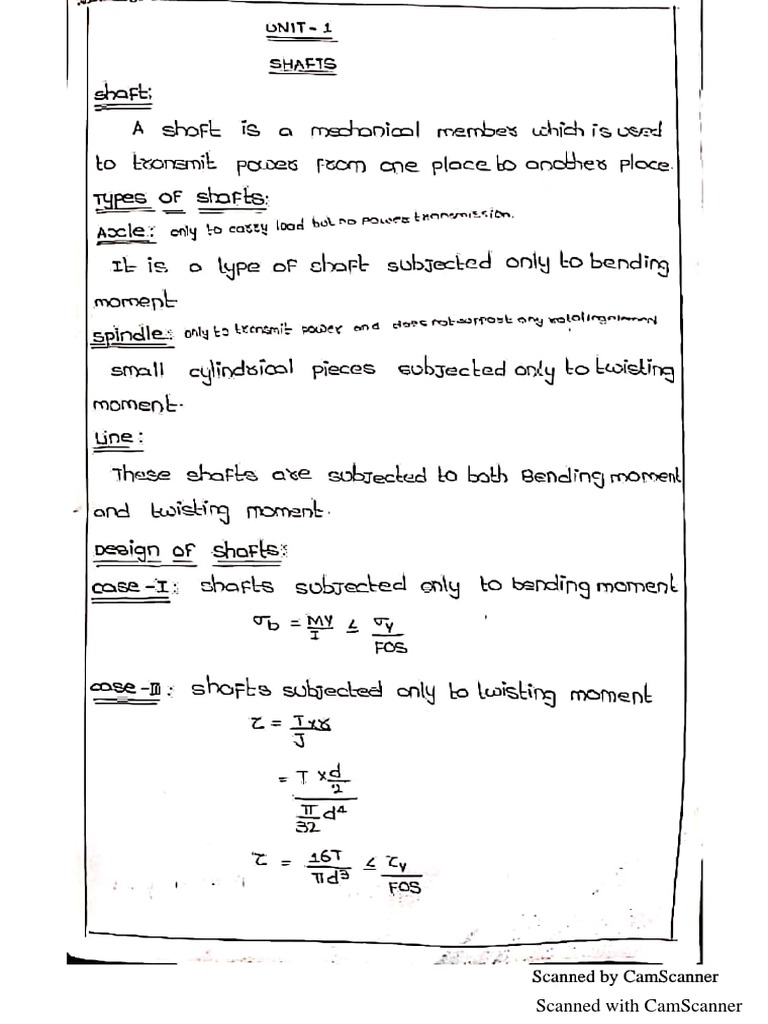 UNIT - 1
SHAFTS
Shaft:
A shaft is a mechanical member which is used
to transmit power from one place to another place.
Types of shafts:
Axcle: only to carry load but no power transmission.
It is a type of shaft subjected only to bending
moment
Spindle: only to transmit power and does not support any rotating
small cylindrical pieces subjected only to twisting
moment.
Line:
These shafts are subjected to both Bending moment
and twisting moment.
Design of shafts:
case - I: shafts subjected only to bending moment
σb = MY/I ≤ σy/FOS
case - II: shafts subjected only to twisting moment
τ = T×r/J
= T × d/2 / π/32 d⁴
τ = 16T/πd³ ≤ τy/FOS
Scanned by CamScanner
Scanned with CamScanner